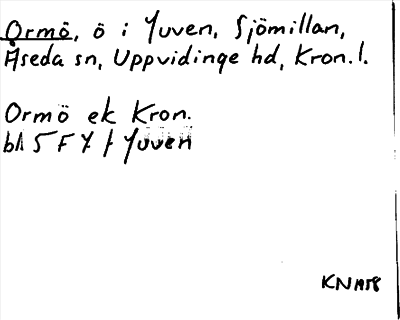 Ormö, ö i Yuven, Sjömillan,
Åseda sn, Uppvidinge hd, Kron. l.
Ormö ek Kron.
bl 5 F Y f Yuven
KN 1958